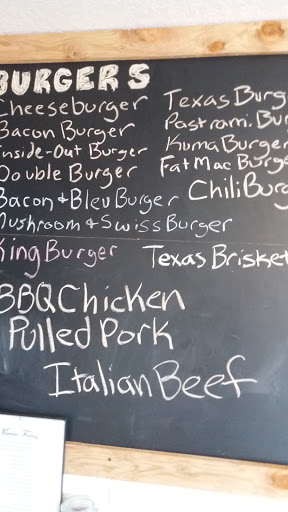 BURGERS
Cheeseburger
Bacon Burger
Inside-Out Burger
Double Burger
Bacon & Bleu Burger
Mushroom & Swiss Burger
King Burger
Texas Burg
Pastrami Bur
Kuma Burger
Fat Mac Burge
Chili Burg
Texas Brisket
BBQ Chicken
Pulled Pork
Italian Beef